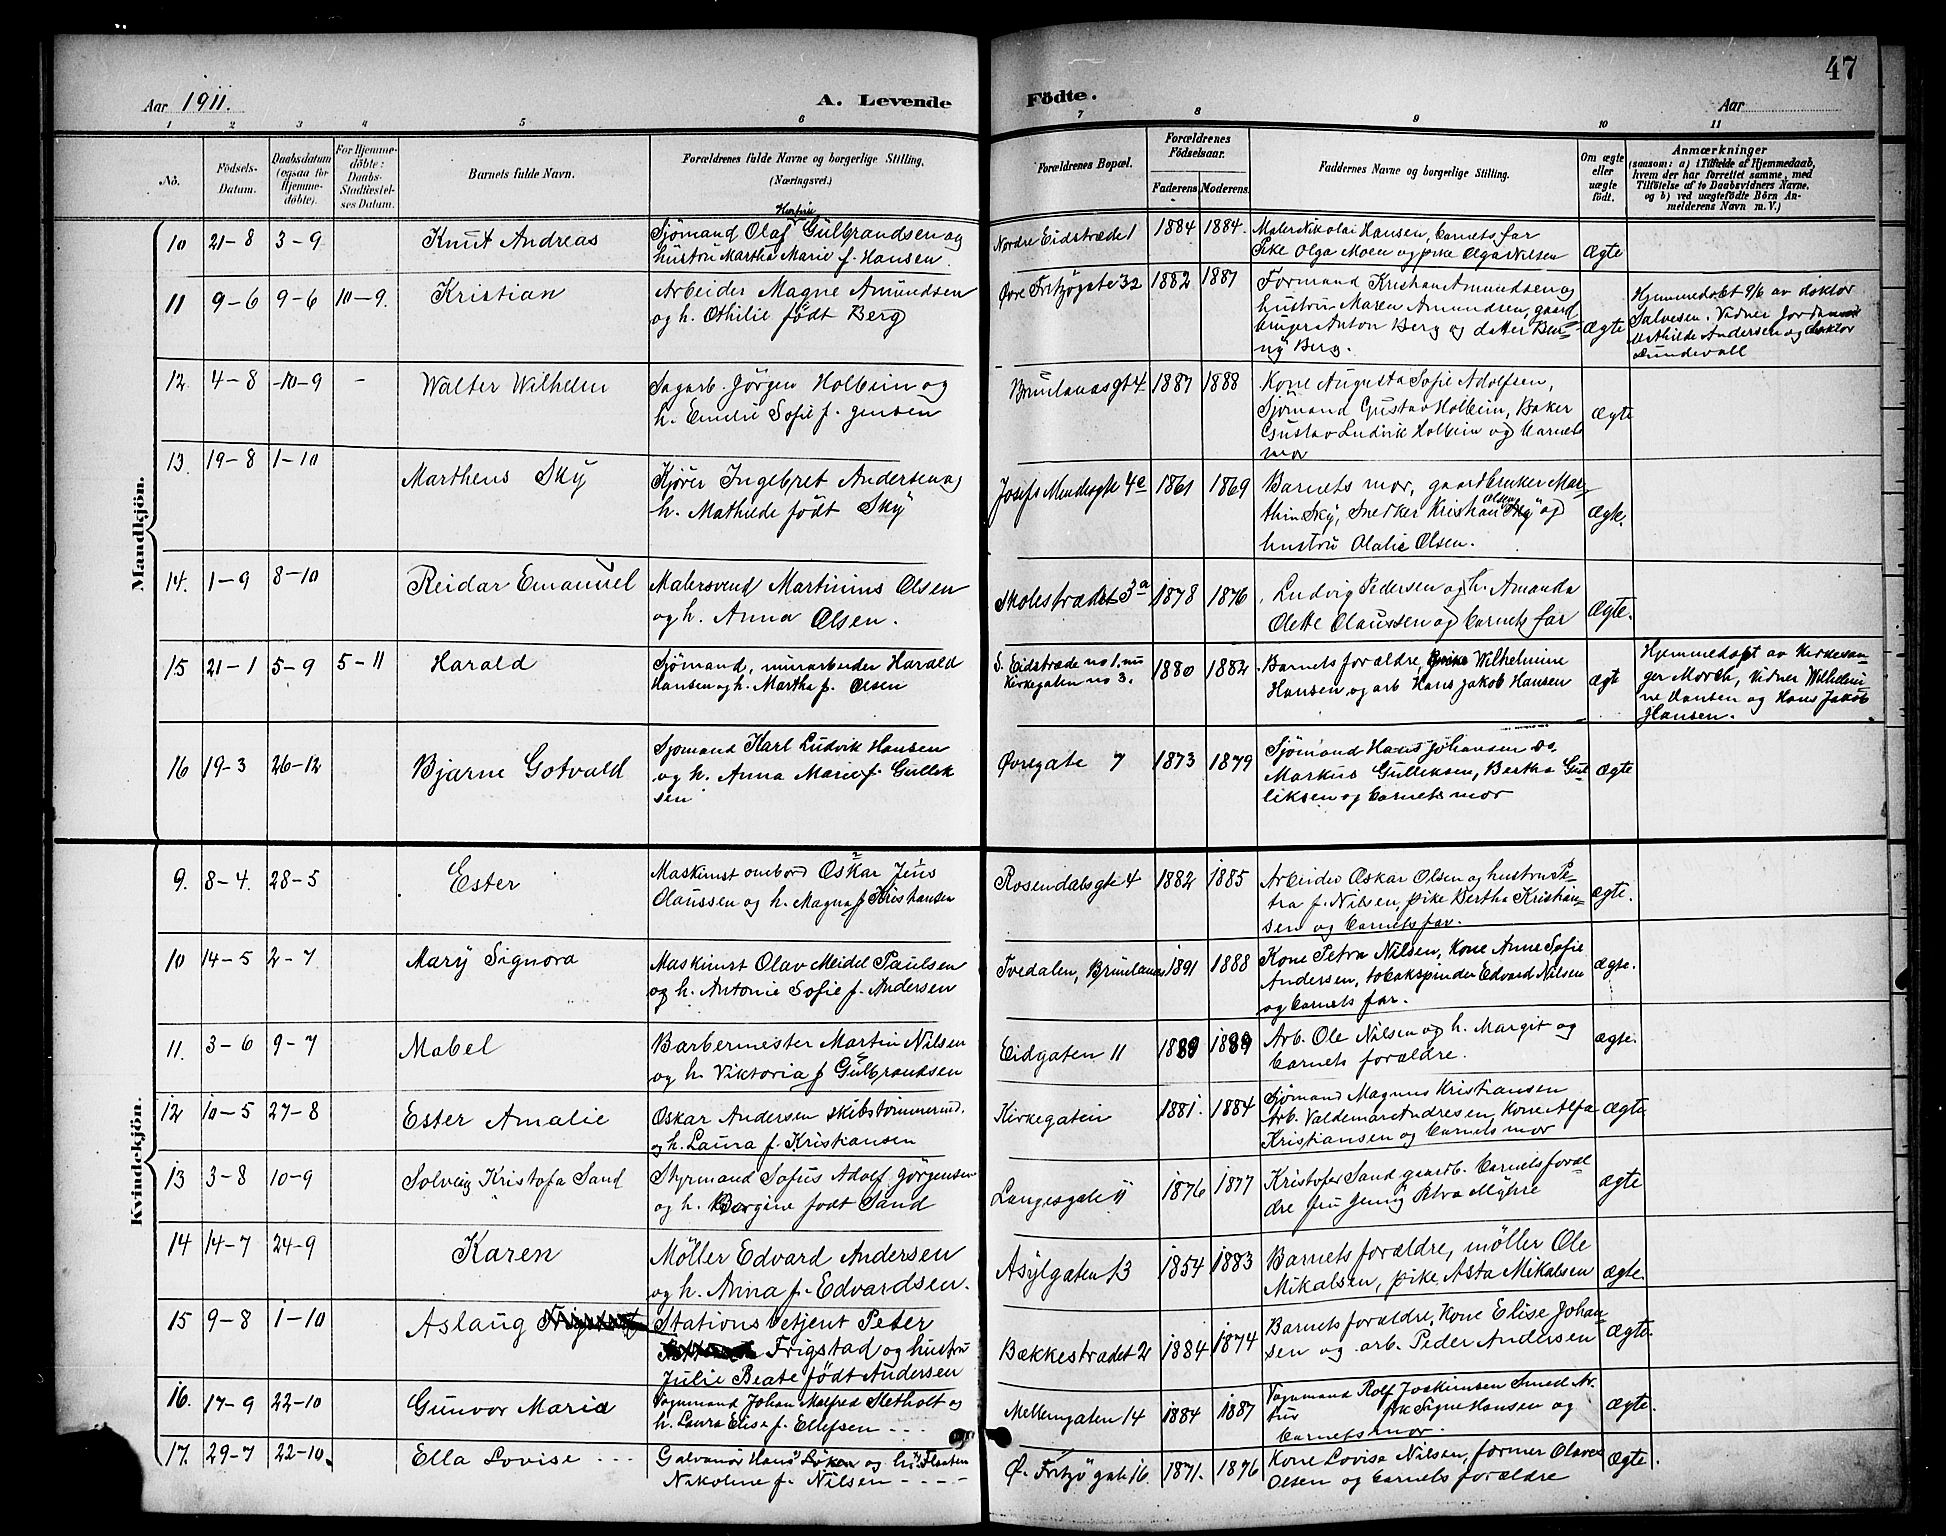 47
Aar 1911.
A. Levende Födte.
Aar
1 2 3 4 5 6 7 8 9 10 11
No.
Födsels-Datum.
Daabsdatum (ogsaa for Hjemme-döbte).
For Hjemme-döbte: Daabs-Stadfæstel-ses Datum.
Barnets fulde Navn.
Forældrenes fulde Navne og borgerlige Stilling. (Næringsvei.)
Forældrenes Bopæl.
Forældrenes Födselsaar.
Faderens Moderens.
Faddernes Navne og borgerlige Stilling.
Om ægte eller uægte födt.
Anmærkninger
(saasom: a) i Tilfælde af Hjemmedaab,
hvem der har forrettet samme, med
Tilföielse af to Daabsvidners Navne,
og b) ved uægtefödte Börn An-
melderens Navn m. V.)
Mandkjön.
10 21-8 3-9 Knut Andreas
Sjömand Olaf Gulbrandsen og
hustru Martha Marie f. Hansen.
Nordre Eidstræde 1 1884 1884.
Maler Nikolai Hansen, barnets far
Pike Olga Moen og pike Olga Nilsen
Ægte
11 9-6 9-6 10-9. Kristian
Arbeider Magne Amundsen
og h. Othilie født Berg
Øvre Fritzögate 32 1882 1881
Formand Kristian Amundsen og
hustru Maren Amundsen, gaard
bruger Anton Berg og datter Ben-
ny Berg.
ægte
Hjemmedøbt 9/6 av doktor
Salvesen. Vidner Jordmor
Mathilde Andersen og doktor
Sundevall
12. 4-8 -10-9 - Walter Wilhelm
Sagarb. Jörgen Holbein og
h. Emelie Sofie f. Jensen
Brunlanesgt 4 1887 1888
Kone Augusta Sofie Adolfsen,
Sjömand Gustav Holbein, Baker
Gustav Ludvik Holbein og barnets
mor
ægte
13. 19-8 1-10 Marthens Sky
Kjörer Ingebret Andersen og
h. Mathilde født Sky
Josefs Mindesgte 4a 1861 1869
Barnets mor, gaardbruker Mar-
thin Sky, Snedker Kristian Olsen Sky og
hustru Olalie Olsen.
Ægte.
14. 1-9 8-10 Reidar Emanuel
Malersvend Martinius Olsen
og h. Anna Olsen.
Skolestrædet 3a 1878 1876
Ludvig Pedersen og h. Amanda
Olette Olaussen og barnets far
Ægte.
15 21-1 5-9 5-11 Harald
Sjömand, murarbeider Harald
Hansen og h. Martha f. Olsen
S. Eidstræde no 1. nu
Kirkegaten no 3. 1880 1882
Barnets forældre, Wilhelmine
Hansen, og arb Hans Jakob Hansen
ægte
Hjemmedøpt av kirkesan-
ger Morch, Vidner Wilhelmi-
ne Hansen og Hans Jakob
Hansen.
16 19-3 26-12 Bjarne Gotvald
Sjömand Karl Ludvik Hansen
og h. Anna Marie f. Gullik
sen
Øvregate 7 1873 1879
Sjömand Hans Johansen do
Markus Gulliksen, Bertha Gul-
liksen og barnets mor
ægte
Kvindekjön.
9. 8-4. 28-5 Ester
Maskinist ombord Oskar Jens
Olaussen og h. Magna f Kristiansen
Rosendalsgte 4 1882 1885
Arbeider Oskar Olsen og hustru Pe-
tra f. Nilsen, pike Bertha Kristian-
sen og barnets far.
ægte.
10 14-5 2-7 Mary Signora
Maskinist Olav Meidel Paulsen
og h. Antonie Sofie f. Andersen
Tvedalen, Brunlanes 1891 1888
Kone Petra Nilsen, Kone Anne Sofie
Andersen, tobakspinder Edvard Nilsen
og barnets far.
ægte.
11. 3-6 9-7 Mabel
Barbermester Martin Nilsen
og h. Viktoria f Gulbrandsen
Eidgaten 11 1889 1889
Arb. Ole Nilsen og h. Margit og
barnets forældre.
ægte.
12 10-5 27-8 Ester Amalie
Oskar Andersen skibstømmermd.
og h. Laura f. Kristiansen
Kirkegaten 1881. 1884
Sjömand Magnus Kristiansen
Arb. Valdemar Andresen, Kone Alfa
Kristiansen og barnets mor
ægte
13 3-8 10-9 Solveig Kristofa Sand
Styrmand Sofus Adolf Jörgensen
og h. Borgine født Sand
Langesgate 11 1876 1877
Kristofer Sand gaardb. barnets foræl-
dre fru Jenny Petra Myhre
ægte
14 14-7 24-9 Karen
Möller Edvard Andersen
og h. Anna f. Edvardsen.
Asylgaten 13 1854 1883
Barnets forældre, möller Ole
Mikalsen, pike Asta Mikalsen
ægte.
15 9-8 1-10 Aslaug
Stationsbetjent Peter
Frigstad og hustru
Julie Beate født Andersen
Bækkestrædet 2 1884 1874
Barnets forældre, Kone Elise Johan
sen og arb. Peder Andersen
Ægte.
16. 17-9 22-10 Gunvor Maria
Vognmand Johan Alfred Sletholt og
h. Laura Elise f. Ellefsen - - -
Mellemgaten 14 1884 1887
Vognmand Rolf Joakimsen Smed Ar-
tur pk Signe Hansen og
barnets mor.
ægte.
17. 29-7 22-10. Ella Lovise - - -
Galvanör Hans Löken og h.
Nikoline f. Nilsen - - - -
Ø. Fritzögate 16. 1871. 1876
Kone Lovise Nilsen, former Olaves
Olsen og barnets forældre
Ægte.